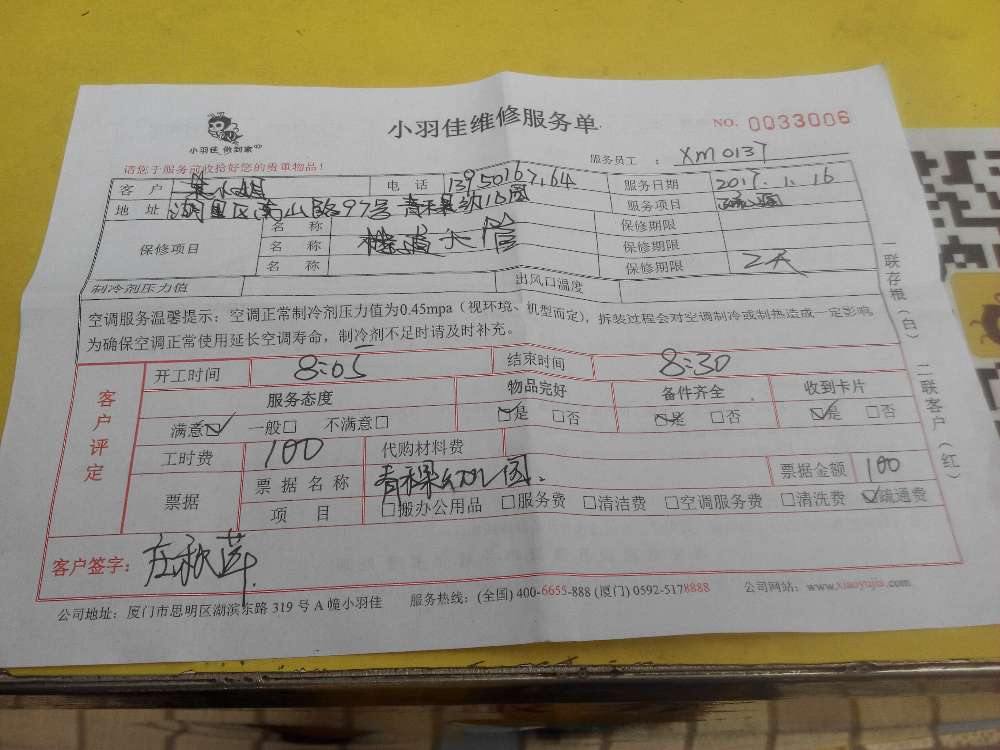 小羽佳 做到家
小羽佳维修服务单
NO. 0033006
请您于服务前收拾好您的贵重物品！
服务员工： XM0137
客户 电话 服务日期 2017.1.16
地址 湖里区南山路97号青稞幼儿园 服务项目 疏通
保修项目 名称 保修期限
名称 楼道大管 保修期限
名称 保修期限 2天
制冷剂压力值 出风口温度
空调服务温馨提示：空调正常制冷剂压力值为0.45mpa（视环境、机型而定），拆装过程会对空调制冷或制热造成一定影响
为确保空调正常使用延长空调寿命，制冷剂不足时请及时补充。
客户评定
开工时间 8:05 结束时间 8:30
服务态度 物品完好 备件齐全 收到卡片
满意☑ 一般□ 不满意□ ☑是 □否 ☑是 □否 ☑是 □否
工时费 100 代购材料费
票据 票据名称 青稞幼儿园. 票据金额 100
项目 □搬办公用品 □服务费 □清洁费 □空调服务费 □清洗费 ☑疏通费
客户签字： 庄秋萍.
公司地址：厦门市思明区湖滨东路319号A幢小羽佳 服务热线：(全国) 400-6655-888 (厦门) 0592-5178888 公司网站：www.xiaoyujia.com
一联存根（白） 二联客户（红）